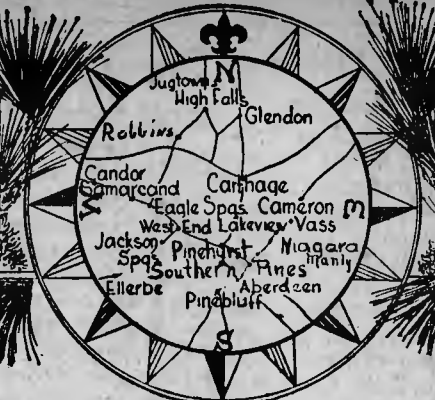 N
Jugtown
High Falls
Glendon
Robbins
Candor
Samarcand
Carthage
W
Eagle Spgs. Cameron E
West End Lakeview Vass
Jackson Spgs
Pinehurst
Niagara
Manly
Southern Pines
Ellerbe
Aberdeen
Pinebluff
S